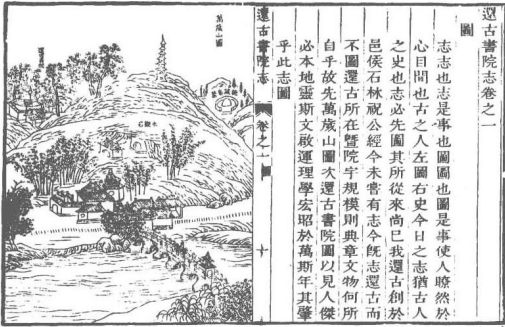 還古書院志卷之一
圖
志志也志是事也圖圖也圖是事使人瞭然於
心目間也古之人左圖右史今日之志猶古人
之史也志必先圖其所從來尚已我還古創於
邑侯石林祝公經今未嘗有志今既志還古而
不圖還古所在暨院宇規模則典章文物何所
自乎故先萬歲山圖次還古書院圖以見人傑
必本地靈斯文啟運理學宏昭於萬斯年其肇
乎此志圖
還古書院志
卷之一
十
萬歲山圖